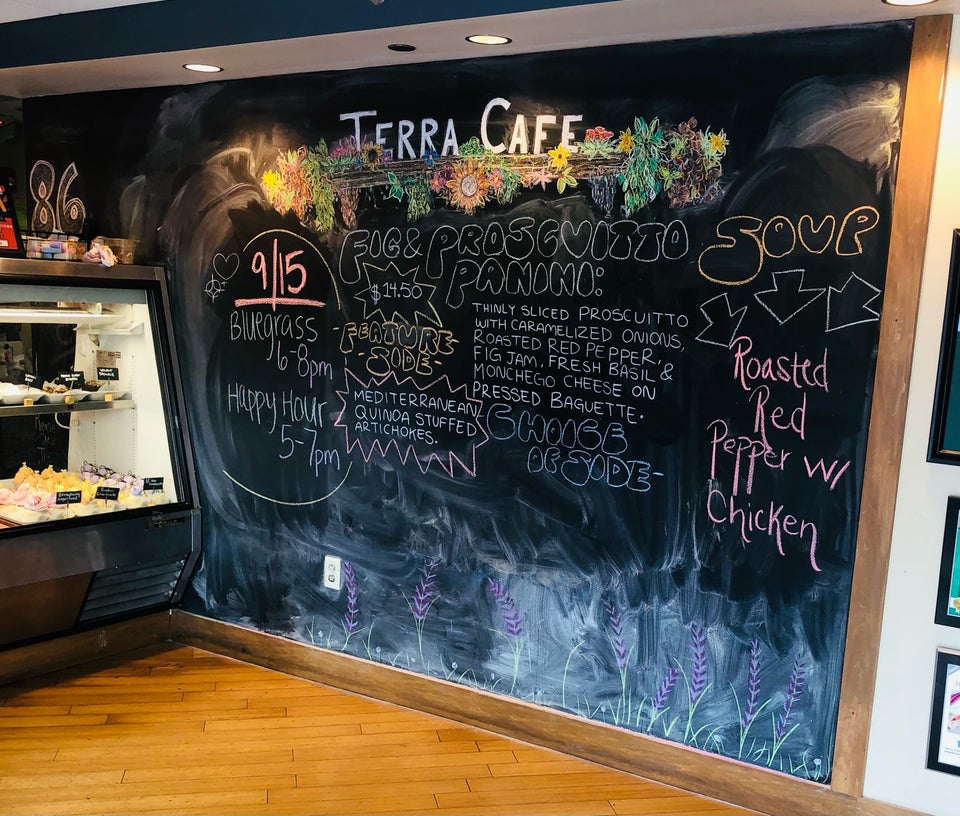 TERRA CAFE
86
9/15
Bluegrass
6-8pm
Happy Hour
5-7pm
FIG & PROSCUITTO
PANINI:
$14.50
FEATURE
-SIDE-
MEDITERRANEAN
QUINOA STUFFED
ARTICHOKES.
THINLY SLICED PROSCUITTO
WITH CARAMELIZED ONIONS,
ROASTED RED PEPPER,
FIG JAM, FRESH BASIL &
MONCHEGO CHEESE ON
PRESSED BAGUETTE.
CHOICE
OF SIDE-
SOUP
Roasted
Red
Pepper w/
Chicken